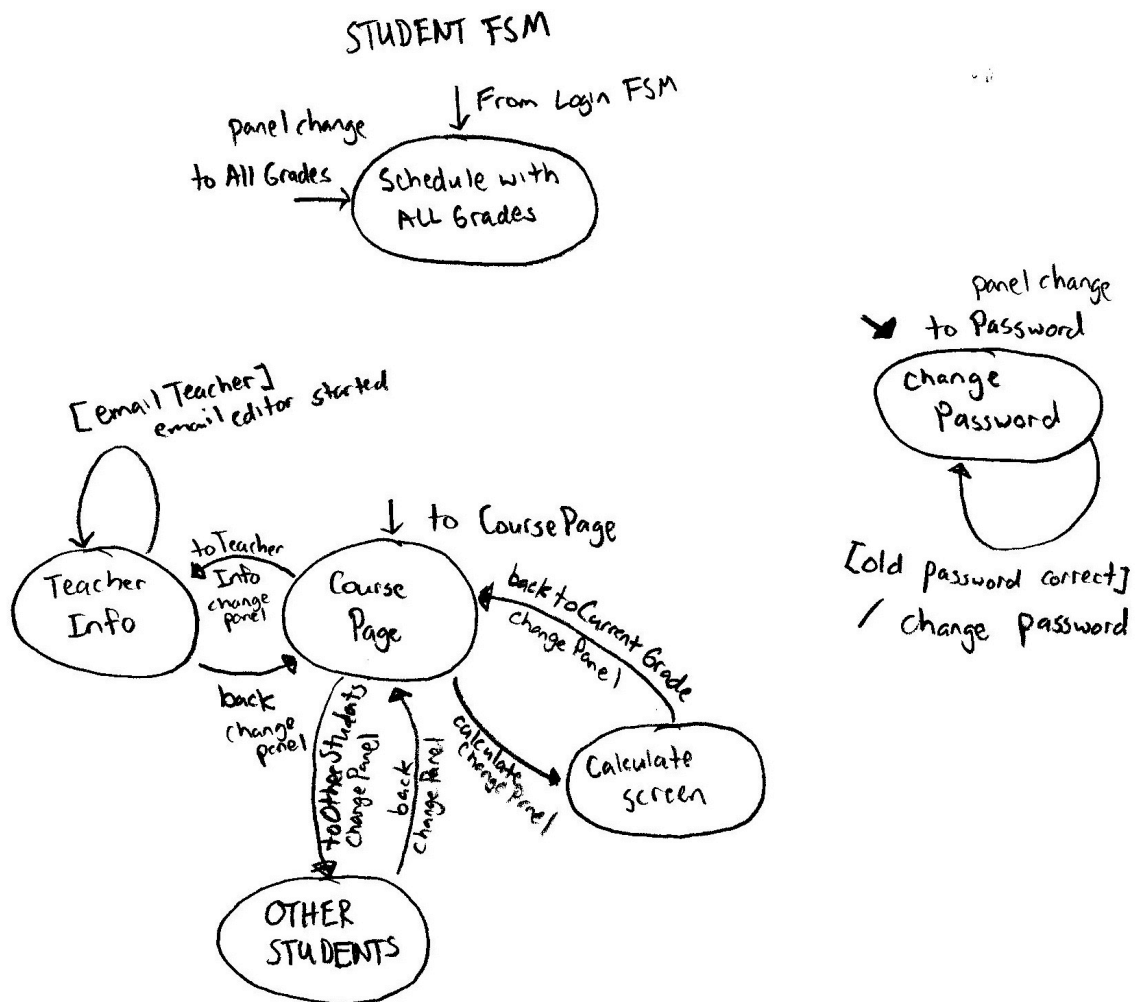 STUDENT FSM
From Login FSM
panel change
to All Grades
Schedule with
ALL Grades
panel change
to Password
change
Password
[old password correct]
/ change password
[email Teacher]
email editor started
to CoursePage
Teacher
Info
toTeacher
Info
change
panel
Course
Page
back
change
panel
backtoCurrentGrade
change Panel
calculate
change panel
Calculate
screen
toOtherStudents
changePanel
back
changePanel
OTHER
STUDENTS